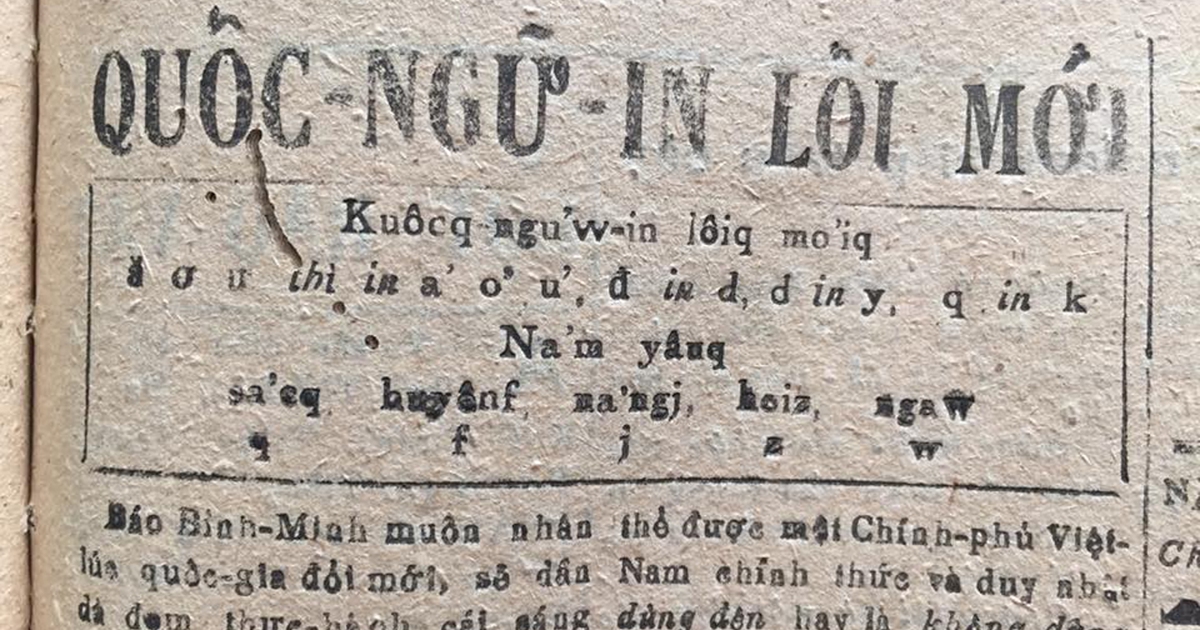 QUỐC-NGỮ-IN LỐI MỚI
Kuôcq-ngu'w-in lôiq mo'iq
ă ơ ư thì in a' o' u', đ in d, d in y, q in k
Na'm yâuq
sa'cq huyênf, na'ngj, hoiz, ngaw
q f j z w
Báo Bình-Minh muốn nhân
lúc quốc-gia đổi mới, sẽ dần
đà đem thực-hành cái sáng
thể được một Chính-phủ Việt-
Nam chính thức và duy nhất
dùng đến hay là không dùng